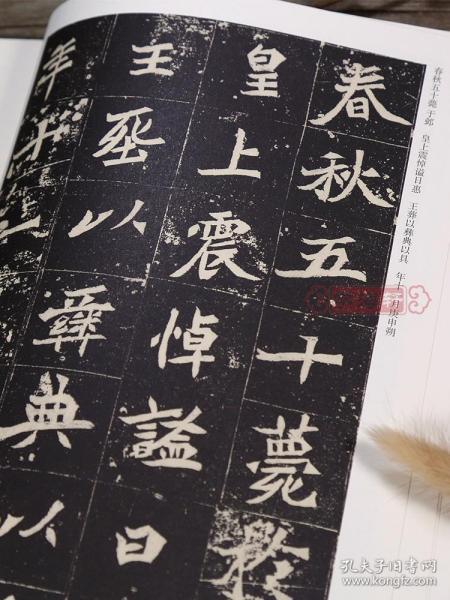 春秋五十薨
皇上震悼謚曰
王塟以彝典以
年十一
春秋五十薨于鄴 皇上震悼谥日惠 王葬以彝典以具 年十一月庚申朔
孔夫子旧书网
www.kongfz.com